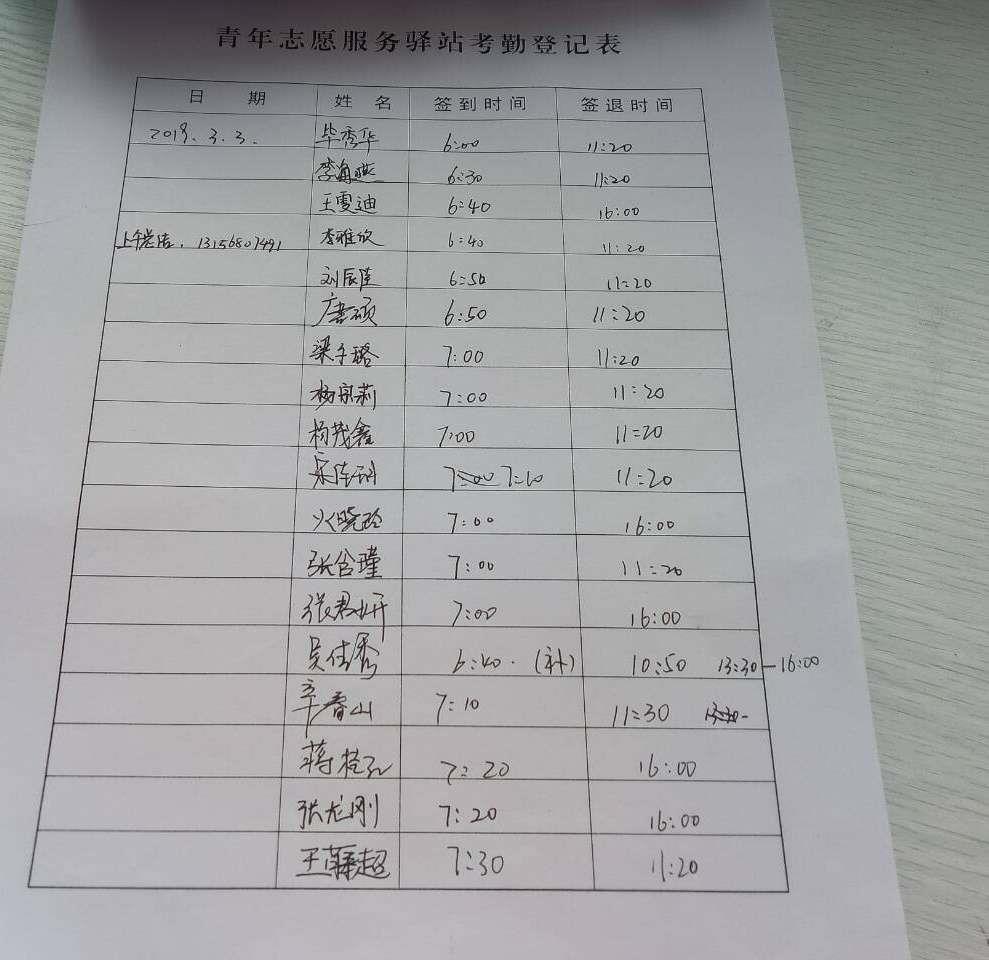 青年志愿服务驿站考勤登记表
日 期 姓 名 签到时间 签退时间
2019.3.3. 毕秀华 6:00 11:20
李海燕 6:30 11:20
王雯迪 6:40 16:00
13156807491 李雅欣 6:40 11:20
刘辰萱 6:50 11:20
唐硕 6:50 11:20
梁子璐 7:00 11:20
杨京莉 7:00 11:20
杨茂鑫 7:00 11:20
7:00 7:10 11:20
晓玲 7:00 16:00
张含瑾 7:00 11:20
张君妍 7:00 16:00
吴佳秀 6:40.(补) 10:50 13:30—16:00
辛春山 7:10 11:30 13:30-
蒋 7:20 16:00
张龙刚 7:20 16:00
王 超 7:30 11:20